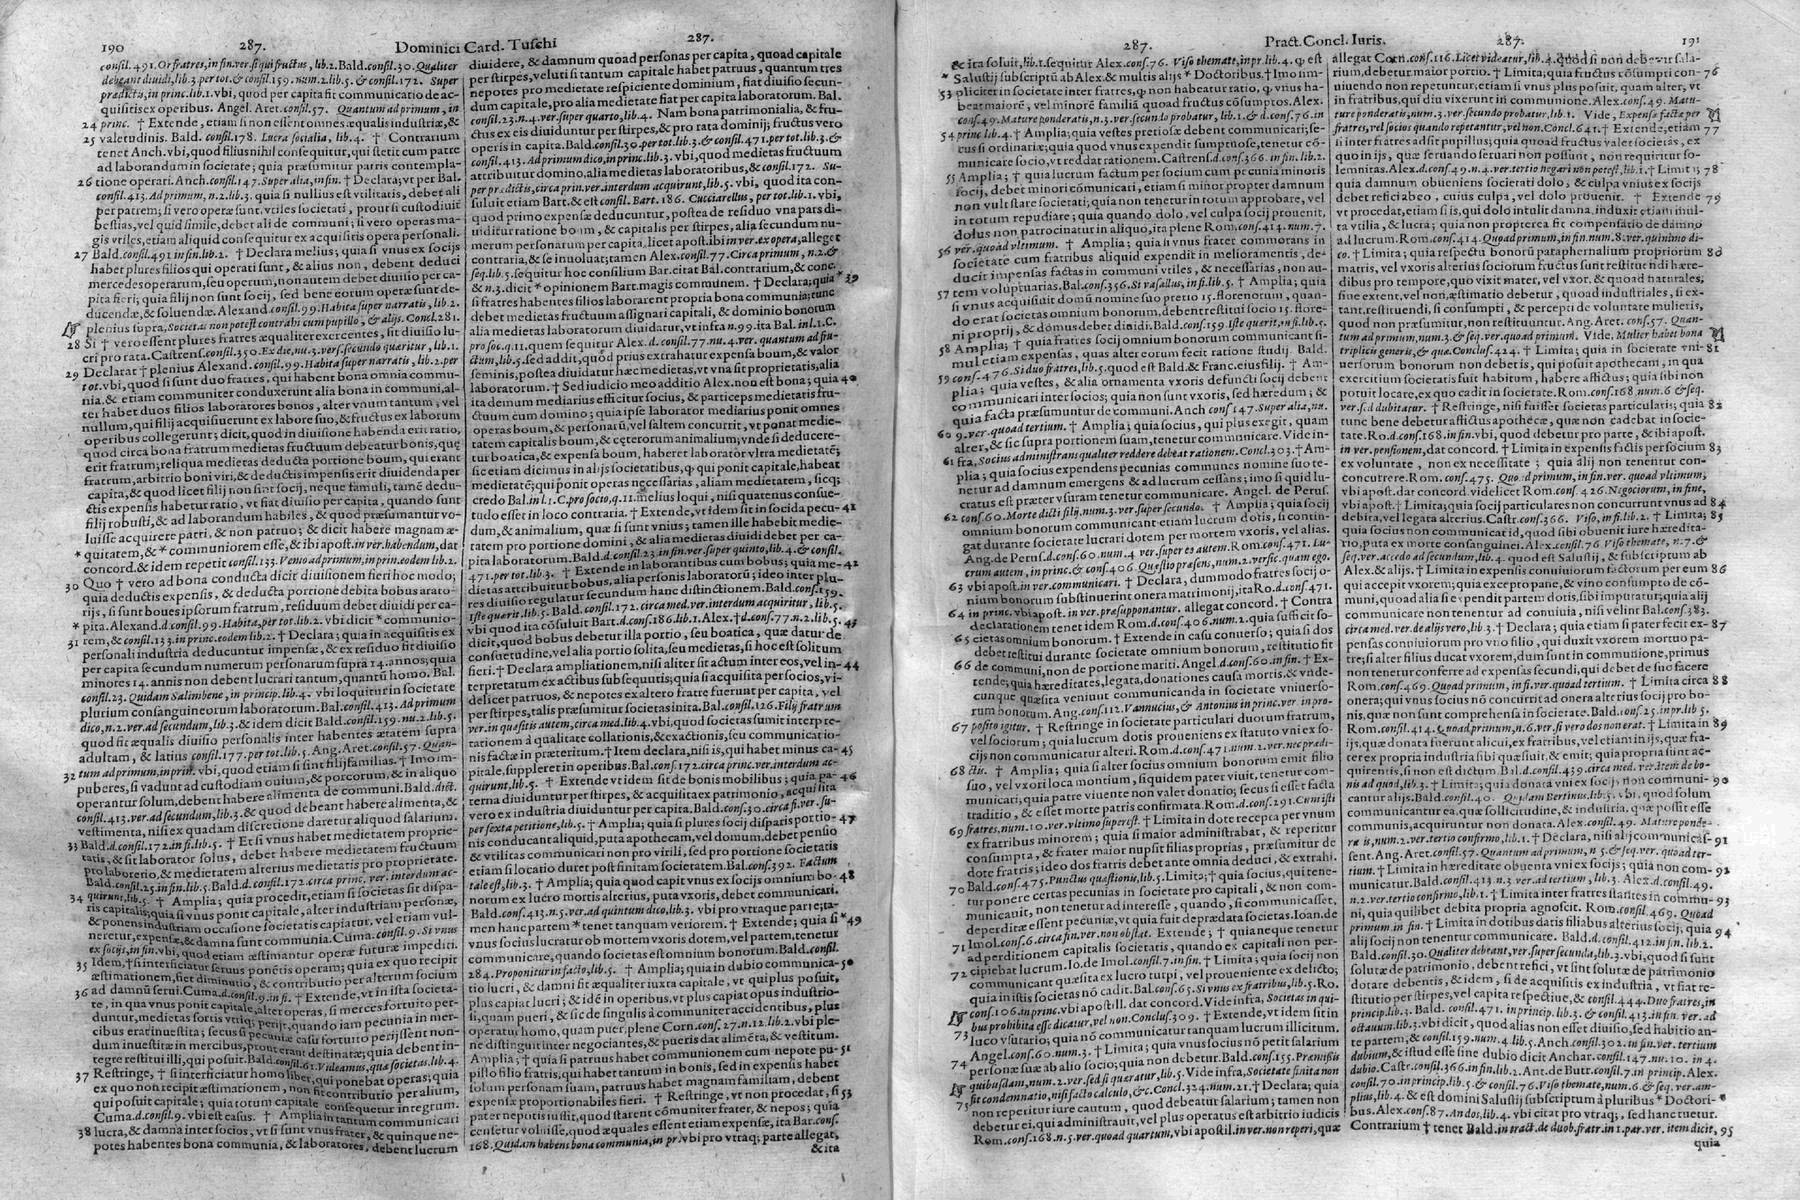 190 287. Dominici Card. Tuschi 287.
consil. 491. Or fratres, in fin. ver. si qui fructus, lib. 2. Bald. consil. 30. Qualiter
debeant diuidi, lib. 3 per tot. & consil. 159. num. 2. lib. 5. & consil. 172. Super
prædicta, in princ. lib. 1. vbi, quod per capita fit communicatio de ac-
quisitis ex operibus. Angel. Aret. consil. 57. Quantum ad primum, in
24 princ. † Extende, etiam si non essent omnes æqualis industriæ, &
25 valetudinis. Bald. consil. 178. Lucra socialia, lib. 4. † Contrarium
tenet Anch. vbi, quod filius nihil consequitur, qui stetit cum patre
ad laborandum in societate; quia præsumitur patris contempla-
26 tione operari. Anch. consil. 147. Super alia, in fin. † Declara; vt per Bal.
consil. 413. Ad primum, n. 2. lib. 3. quia si nullius est vtilitatis, debet ali
per patrem; si vero operæ sunt vtiles societati, prout si custodiuit
bestias, vel quid simile, debet ali de communi; si vero operas ma-
gis vtiles, etiam aliquid consequitur ex acquisitis opera personali.
27 Bald. consil. 491 in fin. lib. 2. † Declara melius; quia si vnus ex socijs
habet plures filios qui operati sunt, & alius non, debent deduci
mercedes operarum, seu operum, non autem debet diuisio per ca-
pita fieri; quia filij non sunt socij, sed bene eorum operæ sunt de-
ducendæ, & soluendæ. Alexand. consil. 99. Habita super narratis, lib. 2.
plenius supra, Societas non potest contrahi cum pupillo, & alijs. Concl. 281.
28 Si † vero essent plures fratres æqualiter exercentes, fit diuisio lu-
cri pro rata. Castren. consil. 350. Ex die, nu. 3. ver. secundo quæritur, lib. 1.
29 Declarat † plenius Alexand. consil. 99. Habita super narratis, lib. 2. per
tot. vbi, quod si sunt duo fratres, qui habent bona omnia commu-
nia, & etiam communiter conduxerunt alia bona in communi, al-
ter habet duos filios laboratores bonos, alter vnum tantum; vel
nullum, qui filij acquisiuerunt ex labore suo, & fructus ex laborum
operibus collegerunt; dicit, quod in diuisione habenda erit ratio,
quod circa bona fratrum medietas fructuum debeatur bonis, quę
erit fratrum; reliqua medietas deducta portione boum, qui erant
fratrum, arbitrio boni viri, & deductis impensis erit diuidenda per
capita, & quod licet filij non sint socij, neque famuli, tamē dedu-
ctis expensis habetur ratio, vt fiat diuisio per capita, quando sunt
filij robusti, & ad laborandum habiles, & quod præsumantur vo-
luisse acquirere patri, & non patruo; & dicit habere magnam æ-
* quitatem, & * communiorem esse, & ibi apost. in ver. habendum, dat
concord. & idem repetit consil. 133. Venio ad primum, in prin. eodem lib. 2.
30 Quo † vero ad bona conducta dicit diuisionem fieri hoc modo;
quia deductis expensis, & deducta portione debita bobus arato-
rijs, si sunt boues ipsorum fratrum, residuum debet diuidi per ca-
* pita. Alexand. d. consil. 99. Habita, per tot. lib. 2. vbi dicit * communio-
31 rem, & consil. 133 in princ. eodem lib. 2. † Declara; quia in acquisitis ex
personali industria deducuntur impensæ, & ex residuo fit diuisio
per capita secundum numerum personarum supra 14. annos; quia
minores 14. annis non debent lucrari tantum, quantū homo. Bal.
consil. 23. Quidam Salimbene, in princip. lib. 4. vbi loquitur in societate
plurium consanguineorum laboratorum. Bal. consil. 413. Ad primum
dico, n. 2. ver. ad secundum, lib. 3. & idem dicit Bald. consil. 159. nu. 2. lib. 5.
quod fit æqualis diuisio personalis inter habentes ætatem supra
adultam, & latius consil. 177. per tot. lib. 5. Ang. Aret. consil. 57. Quan-
32 tum ad primum, in prin. vbi, quod etiam si sint filijfamilias. † Imo im-
puberes, si vadunt ad custodiam ouium, & porcorum, & in aliquo
operantur solum, debent habere alimenta de communi. Bald. dict.
consil. 413. ver. ad secundum, lib. 3. & quod debeant habere alimenta, &
vestimenta, nisi ex quadam discretione daretur aliquod salarium.
33 Bald. d. consil. 172. in fi. lib. 5. † Et si vnus habet medietatem proprie-
tatis, & sit laborator solus, debet habere medietatem fructuum
pro laborerio, & medietatem alterius medietatis pro proprietate.
Bald. consil. 25. in fin. lib. 5. Bald. d. consil. 172. circa princ. ver. interdum ac-
34 quirunt, lib. 5. † Amplia; quia procedit, etiam si societas sit dispa-
ris capitalis; quia si vnus ponit capitale, alter industriam personæ,
& ponens industriam occasione societatis capiatur, vel etiam vul-
neretur, expensæ, & damna sunt communia. Cuma. consil. 9. Si vnus
ex socijs, in fin. vbi, quod etiam æstimantur operæ futuræ impediti.
35 Idem, † si interficiatur seruus ponētis operam; quia ex quo recipit
æstimationem, fiet diminutio, & contributio per alterum socium
36 ad damnū serui. Cuma. d. consil. 9. in fi. † Extende, vt in ista societa-
te, in qua vnus ponit capitale, alter operas, si merces fortuito per-
duntur, medietas fortis vtriq; perijt, quando iam pecunia in mer-
cibus erat inuestita; secus si pecunia casu fortuito perijssent non-
dum inuestita in mercibus, pront erant destinatæ; quia debent in-
tegre restitui illi, qui posuit. Bald. consil. 61. Videamus, qua societas. lib. 4.
37 Restringe, † si interficiatur homo liber, qui ponebat operas; quia
ex quo non recipit æstimationem, non fit contributio per alium,
qui posuit capitale; quia totum capitale consequetur integrum.
Cuma. d. consil. 9. vbi est casus. † Amplia in tantum communicari
38 lucra, & damna inter socios, vt si sunt vnus frater, & quinque ne-
potes habentes bona communia, & laboratores, debent lucrum
diuidere, & damnum quoad personas per capita, quoad capitale
per stirpes, veluti si tantum capitale habet patruus, quantum tres
nepotes pro medietate respiciente dominium, fiat diuisio secun-
dum capitale, pro alia medietate fiat per capita laboratorum. Bal.
consil. 23. n. 4. ver. super quarto, lib. 4. Nam bona patrimonialia, & fru-
ctus ex eis diuiduntur per stirpes, & pro rata dominij; fructus vero
operis in capita. Bald. consil. 30. per tot. lib. 3. & consil. 471. per tot. lib. 3. &
consil. 413. Ad primum dico, in princ. lib. 3. vbi, quod medietas fructuum
attribuitur domino, alia medietas laboratoribus, & consil. 172. Su-
per prædictis, circa prin. ver. interdum acquirunt, lib. 5. vbi, quod ita con-
suluit etiam Bart. & est consil. Bart. 186. Cucciarellus, per tot. lib. 1. vbi,
quod primo expensæ deducuntur, postea de residuo vna pars di-
uiditur ratione boum, & capitalis per stirpes, alia secundum nu-
merum personarum per capita, licet apost. ibi in ver. ex opera, alleget
contraria, & se inuoluat; tamen Alex. consil. 77. Circa primum, n. 2. &
seq. lib. 5. sequitur hoc consilium Bar. citat Bal. contrarium, & conc.
& n. 3. dicit * opinionem Bart. magis communem. † Declara; quia * 39
si fratres habentes filios laborarent propria bona communia; tunc
debet medietas fructuum assignari capitali, & dominio bonorum
alia medietas laboratorum diuidatur, vt infra n. 99. ita Bal. in l. 1. C.
pro soc. q. 11. quem sequitur Alex. d. consil. 77. nu. 4. ver. quantum ad fru-
ctum, lib. 5. sed addit, quòd prius extrahatur expensa boum, & valor
seminis, postea diuidatur hæc medietas, vt vna sit proprietatis, alia
laboratorum. † Sed iudicio meo additio Alex. non est bona; quia 40
ita demum mediarius efficitur socius, & particeps medietatis fru-
ctuum cum domino; quia ipse laborator mediarius ponit omnes
operas boum, & personarū, vel saltem concurrit, vt ponat medie-
tatem capitalis boum, & cęterorum animalium; vnde si deducere-
tur boatica, & expensa boum, haberet laborator vltra medietatē;
sic etiam dicimus in alijs societatibus, q. qui ponit capitale, habeat
medietatē; qui ponit operas necessarias, aliam medietatem, sicq;
credo Bal. in l. 1. C. pro socio, q. 11. melius loqui, nisi quatenus consue-
tudo esset in loco contraria. † Extende, vt idem sit in socida pecu- 41
dum, & animalium, quæ si sunt vnius; tamen ille habebit medie-
tatem pro portione domini, & alia medietas diuidi debet per ca-
pita laboratorum. Bald. d. consil. 23. in fin. ver. super quinto, lib. 4. & consil.
471. per tot. lib. 3. † Extende in laborantibus cum bobus; quia me- 42
dietas attribuitur bobus, alia personis laboratorū; ideo inter plu-
res diuisio regulatur secundum hanc distinctionem. Bald. cons. 159.
Iste quærit, lib. 5. Bald. consil. 172. circa med. ver. interdum acquiritur, lib. 5.
vbi quod ita cōsuluit Bart. d. cons. 186. lib. 1. Alex. † d. cons. 77. n. 2. lib. 5. 43
dicit, quod bobus debetur illa portio, seu boatica, quæ datur de
consuetudine, vel alia portio solita, seu medietas, si hoc est solitum
fieri. † Declara ampliationem, nisi aliter sit actum inter eos, vel in- 44
terpretatum ex actibus subsequutis; quia si acquisita per socios, vi-
delicet patruos, & nepotes ex altero fratre fuerunt per capita, vel
per stirpes, talis præsumitur societas inita. Bal. consil. 126. Filij fratrum
ver. in quæsitis autem, circa med. lib. 4. vbi, quod societas sumit interpre-
tationem à qualitate collationis, & exactionis, seu communicatio-
nis factæ in præteritum. † Item declara, nisi is, qui habet minus ca- 45
pitale, suppleret in operibus. Bal. cons. 172. circa princ. ver. interdum ac-
quirunt, lib. 5. † Extende vt idem sit de bonis mobilibus; quia pa- 46
terna diuiduntur per stirpes, & acquisita ex patrimonio, acquisita
vero ex industria diuiduntur per capita. Bald. cons. 30. circa fi. ver. su-
per sexta petitione, lib. 5. † Amplia; quia si plures socij disparis portio- 47
nis conducant aliquid, puta apothecam, vel domum, debet pensio
& vtilitas communicari non pro virili, sed pro portione societatis
etiam si locatio duret post finitam societatem. Bal. cons. 392. Factum
tale est, lib. 3. † Amplia; quia quod capit vnus ex socijs omnium bo- 48
norum ex lucro mortis alterius, puta vxoris, debet communicari.
Bald. cons. 413. n. 5. ver. ad quintum dico, lib. 3. vbi pro vtraque parte; ta-
men hanc partem * tenet tanquam veriorem. † Extende; quia si * 49
vnus socius lucratur ob mortem vxoris dotem, vel partem, tenetur
communicare, quando societas est omnium bonorum. Bald. consil.
284. Proponitur in facto, lib. 5. † Amplia; quia in dubio communica- 50
tio lucri, & damni fit æqualiter iuxta capitale, vt qui plus posuit,
plus capiat lucri; & idē in operibus, vt plus capiat opus industrio-
si, quam pueri, & sic de singulis à communiter accidentibus, plus
operatur homo, quam puer, plene Corn. cons. 27. n. 12. lib. 2. vbi ple-
ne distinguit inter negociantes, & pueris dat alimēta, & vestitum.
Amplia; † quia si patruus habet communionem cum nepote pu- 51
pillo filio fratris, qui habet tantum in bonis, sed in expensis habet
solum personam suam, patruus habet magnam familiam, debent
expensæ proportionabiles fieri. † Restringe, vt non procedat, si 52
pater nepotis iussit, quod starent cōmuniter frater, & nepos; quia
censetur voluisse, quod æquales essent etiam expensæ, ita Bar. cons.
168. Quidam habens bona communia, in pr. vbi pro vtraq; parte allegat,
& ita
287. Pract. Concl. Iuris. 287. 191
* & ita soluit, lib. 1. sequitur Alex. cons. 76. Viso themate, in pr. lib. 4. q. est
* Salustij subscriptū ab Alex. & multis alijs * Doctoribus. † Imo im-
53 pliciter in societate inter fratres, q. non habeatur ratio, q. vnus ha-
beat maiorē, vel minorē familiā quoad fructus cōsumptos. Alex.
cons. 49. Mature ponderatis, n. 3. ver. secundo probatur, lib. 1. & d. cons. 76. in
54 princ. lib. 4. † Amplia; quia vestes pretiosæ debent communicari; se-
cus si ordinariæ; quia quod vnus expendit sumptuose, tenetur cō-
municare socio, vt reddat rationem. Castren. d. cons. 366. in fin. lib. 2.
55 Amplia; † quia lucrum factum per socium cum pecunia minoris
socij, debet minori cōmunicari, etiam si minor propter damnum
non vult stare societati; quia non tenetur in totum approbare, vel
in totum repudiare; quia quando dolo, vel culpa socij prouenit,
dolus non patrocinatur in aliquo, ita plene Rom. cons. 414. num. 7.
56 ver. quoad vltimum. † Amplia; quia si vnus frater commorans in
societate cum fratribus aliquid expendit in melioramentis, de-
ducit impensas factas in communi vtiles, & necessarias, non au-
57 tem voluptuarias. Bal. cons. 356. Si vasallus, in fi. lib. 5. † Amplia; quia
si vnus acquisiuit domū nomine suo pretio 15. florenorum, quan-
do erat societas omnium bonorum, debent restitui socio 15. flore-
ni proprij, & domus debet diuidi. Bald. cons. 159. Iste quærit, in fi. lib. 5.
58 Amplia; † quia fratres socij omnium bonorum communicant si-
mul etiam expensas, quas alter eorum fecit ratione studij. Bald.
59 cons. 476. Si duo fratres, lib. 5. quod est Bald. & Franc. eius filij. † Am-
plia; quia vestes, & alia ornamenta vxoris defuncti socij debent
communicari inter socios; quia non sunt vxoris, sed hæredum; &
quia facta præsumuntur de communi. Anch. cons. 147. Super alia, nu.
60 9. ver. quoad tertium. † Amplia; quia socius, qui plus exegit, quam
alter, & sic supra portionem suam, tenetur communicare. Vide in-
61 fra, Socius administrans qualiter reddere debeat rationem. Concl. 303. † Am-
plia; quia socius expendens pecunias communes nomine suo te-
netur ad damnum emergens & ad lucrum cessans; imo si quid lu-
cratus est præter vsuram tenetur communicare. Angel. de Perus.
62 cons. 60. Morte dicti filij, num. 3. ver. super secundo. † Amplia; quia socij
omnium bonorum communicant etiam lucrum dotis, si contin-
gat durante societate lucrari dotem per mortem vxoris, vel alias.
Ang. de Perus. d. cons. 60. num. 4. ver. super eo autem. Rom. cons. 471. Lu-
crum autem, in princ. & cons. 406. Quæstio præsens, num. 2. versic. quam ego.
63 vbi apost. in ver. communicari. † Declara, dummodo fratres socij o-
nium bonorum substinuerint onera matrimonij, ita Ro. d. cons. 471.
64 in princ. vbi apost. in ver. præsupponantur, allegat concord. † Contra
declarationem tenet idem Rom. d. cons. 406. num. 2. quia sufficit so-
65 cietas omnium bonorum. † Extende in casu conuerso; quia si dos
debet restitui durante societate omnium bonorum, restitutio fit
66 de communi, non de portione mariti. Angel. d. cons. 60. in fin. † Ex-
tende; quia hæreditates, legata, donationes causa mortis, & vnde-
cunque quæsita veniunt communicanda in societate vniuerso-
rum bonorum. Ang. cons. 112. Vannucius, & Antonius in princ. ver. in pro-
67 posito igitur. † Restringe in societate particulari duorum fratrum,
vel sociorum; quia lucrum dotis proueniens ex statuto vni ex so-
cijs non communicatur alteri. Rom. d. cons. 471. num. 2. ver. nec prædi-
68 ctis. † Amplia; quia si alter socius omnium bonorum emit filio
suo, vel vxori loca montium, siquidem pater viuit, tenetur com-
municari, quia patre viuente non valet donatio; secus si esset facta
traditio, & esset morte patris confirmata. Rom. d. cons. 291. Cum isti
69 fratres, num. 10. ver. vltimo superest. † Limita in dote recepta per vnum
ex fratribus minorem; quia si maior administrabat, & reperitur
consumpta, & frater maior nupsit filias proprias, præsumitur de
dote fratris; ideo dos fratris debet ante omnia deduci, & extrahi.
70 Bald. cons. 475. Punctus quæstionis, lib. 5. Limita; † quia socius, qui tene-
tur ponere certas pecunias in societate pro capitali, & non com-
municauit, non tenetur ad interesse, quando, si communicasset,
deperditæ essent pecuniæ, vt quia fuit deprædata societas. Ioan. de
71 Imol. cons. 6. circa fin. ver. non obstat. Extende; † quia neque tenetur
ad perditionem capitalis societatis, quando ex capitali non per-
72 cipiebat lucrum. Io. de Imol. cons. 7. in fin. † Limita; quia socij non
communicant quæsita ex lucro turpi, vel proueniente ex delicto;
quia in istis societas nō cadit. Bal. cons. 65. Si vnus ex fratribus, lib. 5. Ro.
cons. 106. in princ. vbi apostill. dat concord. Vide infra, Societas in qui-
bus prohibita esse dicatur, vel non. Conclus. 309. † Extende, vt idem sit in
73 luco vsurario; quia nō communicatur tanquam lucrum illicitum.
Angel. cons. 60. num. 3. † Limita; quia vnus socius nō petit salarium
74 personæ suæ ab alio socio; quia non debetur. Bald. cons. 155. Præmissis
quibusdam, num. 2. ver. sed si queratur, lib. 5. Vide infra, Societate finita non
fit condemnatio, nisi facto calculo, &c. Concl. 324. num. 21. † Declara; quia
75 non reperitur iure cautum, quod debeatur salarium; tamen non
debetur ei, qui administrauit, vel plus operatus est arbitrio iudicis
Rom. cons. 168. n. 5. ver. quoad quartum, vbi apostil. in ver. non reperi, quæ
allegat Corn. cons. 116. Licet videatur, lib. 4. quòd si non debe vir sala-
rium, debetur maior portio. † Limita; quia fructus cōsumpti con- 76
uiuendo non repetuntur, etiam si vnus plus posuit, quam alter, vt
in fratribus, qui diu vixerunt in communione. Alex. cons. 49. Matu-
ture ponderatis, num. 3. ver. secundo probatur, lib. 1. Vide, Expensa facta per
fratres, vel socios quando repetantur, vel non. Concl. 641. † Extende, etiam 77
si inter fratres adsit pupillus; quia quoad fructus valet societas, ex
quo in ijs, quæ seruando seruari non possunt, non requiritur so-
lemnitas. Alex. d. cons. 49. n. 4. ver. tertio negari non potest, lib. 1. † Limita; 78
quia damnum obueniens societati dolo, & culpa vnius ex socijs
debet refici ab eo, cuius culpa, vel dolo prouenit. † Extende 79
vt procedat, etiam si is, qui dolo intulit damna, induxit etiam mul-
ta vtilia, & lucra; quia non propterea fit compensatio de damno
ad lucrum. Rom. cons. 414. Quoad primum, in fin. num. 8. ver. quinimo di-
co. † Limita; quia respectu bonorū paraphernalium propriorum 80
matris, vel vxoris alterius sociorum fructus sunt restituēdi hære-
dibus pro tempore, quo vixit mater, vel vxor, & quoad naturales,
siue extent, vel non, æstimatio debetur, quoad industriales, si ex-
tant, restituendi, si consumpti, & percepti de voluntate mulieris,
quod non præsumitur, non restituuntur. Ang. Aret. cons. 57. Quan-
tum ad primum, num. 3. & seq. ver. quoad primum. Vide, Mulier habet bona
triplicis generis, & quæ. Conclus. 424. † Limita; quia in societate vni- 81
uersorum bonorum non debet is, qui posuit apothecam, in qua
exercitium societatis fuit habitum, habere affictus; quia sibi non
potest locare, ex quo cadit in societate. Rom. cons. 168. num. 6. & seq.
ver. sed dubitatur. † Restringe, nisi fuisset societas particularis; quia 82
tunc bene debetur affictus apothecæ, quæ non cadebat in socie-
tate. Ro. d. cons. 168. in fin. vbi, quod debetur pro parte, & ibi apost.
in ver. pensionem, dat concord. † Limita in expensis factis per socium 83
ex voluntate, non ex necessitate; quia alij non tenentur con-
concurrere. Rom. cons. 475. Quoad primum, in fin. ver. quoad vltimum;
vbi apost. dar concord. videlicet Rom. cons. 426. Negociorum, in fine,
vbi apost. † Limita; quia socij particulares non concurrunt vnus ad 84
debita, vel legata alterius. Castr. cons. 366. Viso, in fi. lib. 2. † Limita; 85
quia socius non communicat id, quod sibi obuenit iure hæredita-
rio, puta ex morte consanguinei. Alex. cons. 76. Viso themate, n. 7. &
seq. ver. accedo ad secundum, lib. 4. quod est Salustij, & subscriptum ab
Alex. & alijs. † Limita in expensis conuiuiorum factorum per eum 86
qui accepit vxorem; quia excepto pane, & vino consumpto de cō-
muni, quoad alia si expendit partem dotis, sibi imputatur; quia alij
communicare non tenentur ad conuiuia, nisi velint Bal. cons. 383.
circa med. ver. de alijs vero, lib. 3. † Declara; quia etiam si pater fecit ex- 87
pensas conuiuiorum pro vno filio, qui duxit vxorem mortuo pa-
tre; si alter filius ducat vxorem, dum sunt in communione, primus
non tenetur conferre ad expensas secundi, qui debet de suo facere
Rom. cons. 469. Quoad primum, in fi. ver. quoad tertium. † Limita circa 88
onera; qui vnus socius nō concurrit ad onera alterius socij pro bo-
nis, quæ non sunt comprehensa in societate. Bald. cons. 25. in pr. lib. 5.
Rom. cons. 414. Quoad primum, n. 6. ver. si vero dos non erat. † Limita in 89
ijs, quæ donata fuerunt alicui, ex fratribus, vel etiam in ijs, quæ fra-
ter ex propria industria sibi quæsiuit, & emit; quia propria sunt ac-
quirentis, si non est dictum. Bal. d. cons. 459. circa med. ver. item de bo-
nis ad quod, lib. 3. † Limita; quia donata vni ex socijs non communi- 90
cantur alijs. Bald. consil. 40. Quidam Bertinus. lib. 5. vbi, quod solum
communicantur ea, quæ sollicitudine, & industria, quæ possit esse
communis, acquiruntur non donata. Alex. consil. 49. Mature ponde-
ra is, num. 2. ver. tertio confirmo, lib. 1. † Declara, nisi alij communicas- 91
sent. Ang. Aret. cons. 57. Quantum ad primum, n. 5. & seq. ver. quo ad ter-
tium. † Limita in hæreditate obuenta vni ex socijs; quia non com- 92
municatur. Bald. consil. 413. n. 3. ver. ad tertium, lib. 3. Alex. d. cons. 49.
n. 2. ver. tertio confirmo, lib. 1. † Limita inter fratres stantes in commu- 93
ni, quia quilibet debita propria agnoscit. Rom. consil. 469. Quoad
primum in fin. † Limita in dotibus datis filiabus alterius socij; quia 94
alij socij non tenentur communicare. Bald. d. cons. 412. in fin. lib. 2.
Bald. cons. 30. Qualiter debeant, ver. super secunda, lib. 3. vbi, quod si sunt
solutæ de patrimonio, debent refici, vt sint solutæ de patrimonio
dotare debentis, & idem, si de acquisitis ex industria, vt fiat re-
stitutio per stirpes, vel capita respectiue, & cons. 444. Duo fratres, in
princip. lib. 3. Bald. consil. 471. in princip. lib. 3. & consil. 413. in fin. ver. ad
octauum, lib. 3. vbi dicit, quod alias non esset diuisio, sed habitio an-
te partem; & cons. 159. num. 4. lib. 5. Anch. cons. 302. in fin. ver. tertium
dubium, & istud esse sine dubio dicit Anchar. cons. 147. nu. 10. in 4.
dubio. Castr. cons. 366. in fin. lib. 2. Ant. de Butt. cons. 7. in princip. Alex.
consil. 70. in princip. lib. 5. & cons. 76. Viso themate, num. 6. & seq. ver. am-
plius, lib. 4. & est domini Salustij subscriptum à pluribus * Doctori- *
bus. Alex. cons. 87. An dos, lib. 4. vbi citat pro vtraq;, sed hanc tuetur.
Contrarium † tenet Bald. in tract. de duob. fratr. in 1. par. ver. item dicit, 95
quia